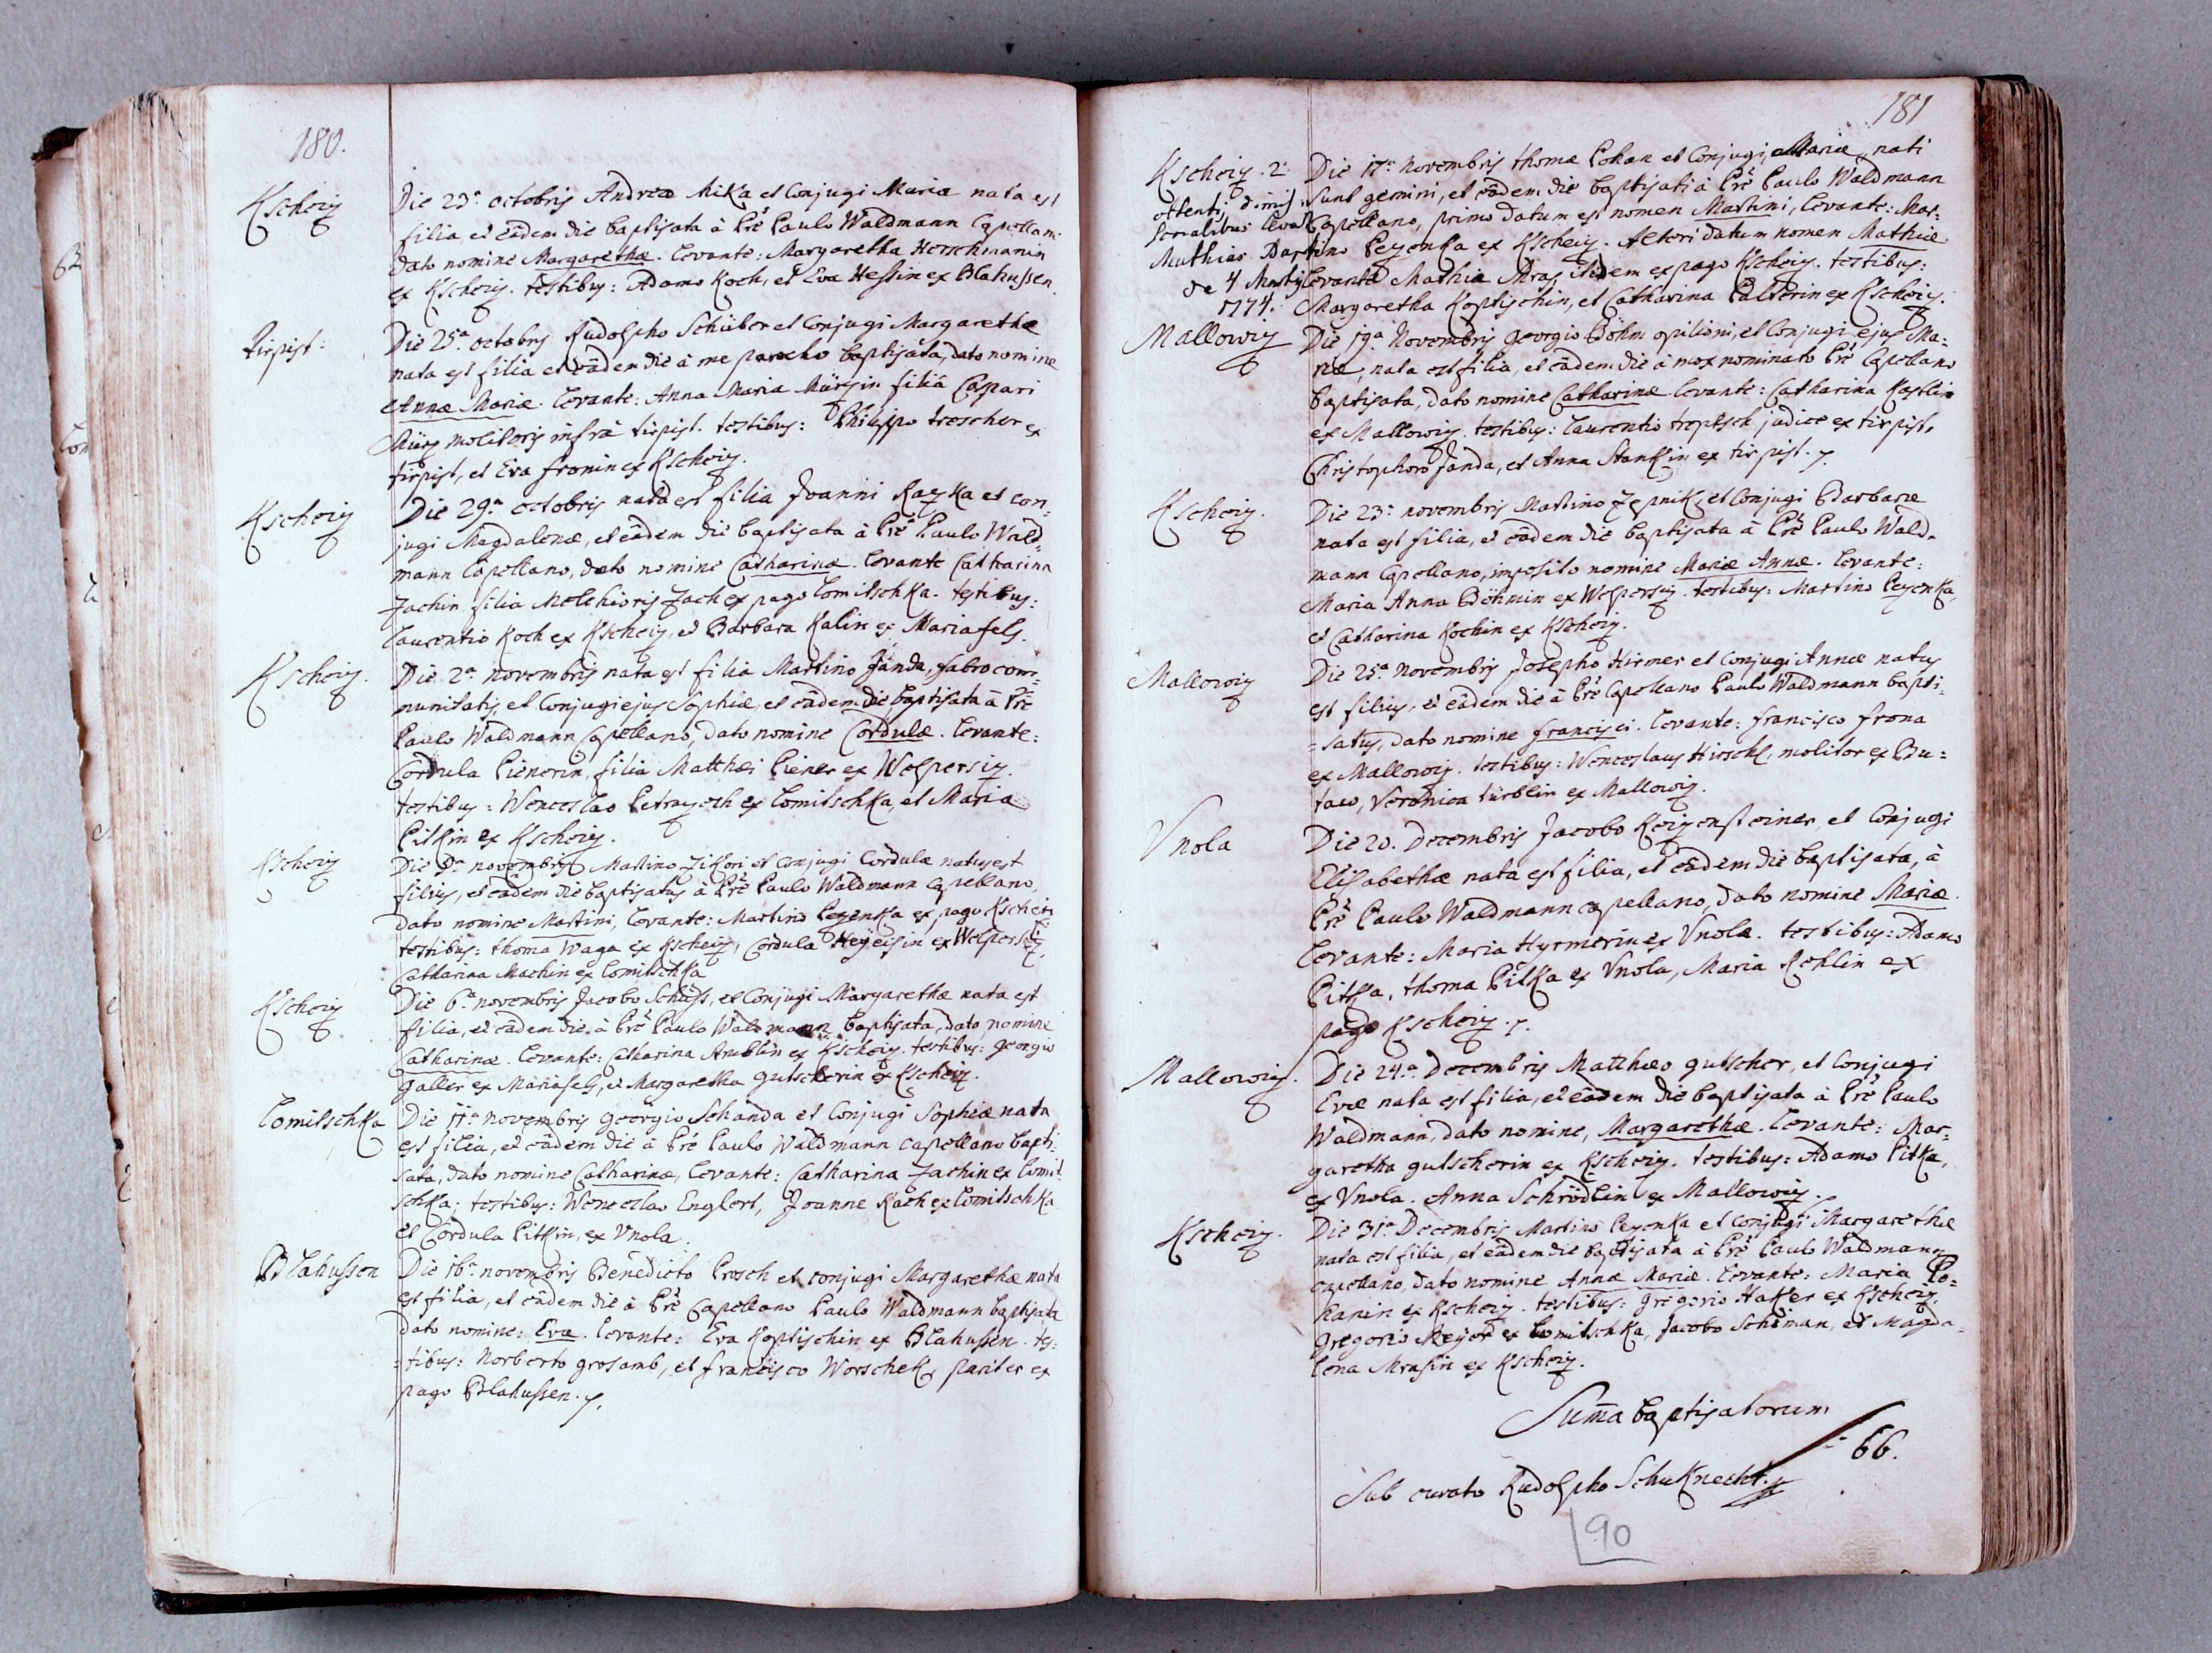 180.
Kscheiz
Die 23a octobris Andreæ Mika et Conjugi Mariæ nata est
filia et eâdem die baptisata à Pre Paulo Waldmann Capellano
dato nomine Margarethæ. Levante: Margaretha Herschmanin
ex Kscheiz. testibus: Adamo Koch, et Eva Hessin ex Blahussen.
Tirpist:
Die 25a octobris Rudolpho Schüber et Conjugi Margarethæ
nata est filia et eâdem die à me parocho baptisata, dato nomine
Annæ Mariæ. Levante: Anna Maria Mürzin filiâ Caspari
Mürz molitoris infrà tirpist. testibus: Philippo trescher ex
tirpist, et Eva fronin ex Kscheiz.
Kscheiz
Die 29a octobris nata est filia Joanni Rayka et con-
jugi Magdalenæ, et eâdem die baptisata à Pre Paulo Wald-
mann Capellano, dato nomine Catharinæ. Levante Catharina
Zachin filia Melchioris Zach ex pago Lomitschka. testibus:
Laurentio Koch ex Kscheiz, et Barbara Kalin ex Mariafels.
Kscheiz.
Die 2a novembris nata est filia Martino Janda, fabro com-
munitatis, et Conjugi ejus Sophiæ, et eâdem die baptisata à Pre
Paulo Waldmann Capellano, dato nomine Cordulæ. Levante:
Cordula Pienerin, filia Matthæi Piener ex Wolpersiz.
testibus: Wenceslao Petrayech ex Lomitschka, et Maria
Pitkin ex Kscheiz.
Kscheiz
Die novembris Martino Zikori et Conjugi Cordulæ natus est
filius, et eâdem die baptisatus à Pre Paulo Waldmann Capellano,
dato nomine Martini, Levante: Martino Peyenka ex pago Kscheiz
testibus: thoma Waga ex Kscheiz, Cordula Heyeisin ex Wolpersiz,
Catharina Machin ex Lomitschka
Kscheiz
Die 6a novembris Jacobo Schüss, et Conjugi Margarethæ nata est
filia, et eâdem die à Pre Paulo Waldmann baptisata, dato nomine
Catharinæ. Levante: Catharina Arnblin ex Kscheiz. testibus: Georgio
Galler ex Mariafels, et Margaretha Gutscherin ex Kscheiz.
Lomitschka
Die 11a novembris Georgio Schanda et Conjugi Sophiæ nata
est filia, et eâdem die à Pre Paulo Waldmann Capellano bapti-
sata, dato nomine Catharinæ, Levante: Catharina Zachin ex Lomit-
schka; testibus: Wenceslao Englert, Joanne Kach ex Lomitschka
et Cordula Pitkin, ex Vnola.
Blahussen
Die 16a novembris Benedicto Prosch et conjugi Margarethæ nata
est filia, et eâdem die à Pre Capellano Paulo Waldmann baptisata
dato nomine: Evæ. Levante: Eva Koptischin ex Blahussen. tes-
=tibus: Norberto grosamb, et francisco Worschek, pariter ex
pago Blahussen.
181
Kscheiz. 2.
Mathias
de 4 Martij
1774.
Die 17a novembris thomæ Pohan et Conjugi Mariæ, nati
sunt gemini, et eâdem die baptisati à Pre Paulo Waldmann
Capellano, primo datum est nomen Martini, Levante: Mar-
tino Peyenka ex Kscheiz. Alteri datum nomen Mathiæ
Levante Mathia Mraz itidem ex pago Kscheiz. testibus:
Margaretha Koptischin, et Catharina Palterin ex Kscheiz.
Mallowiz
Die 19a Novembris Georgio Böhm opilioni, et Conjugi ejus Ma-
riæ, nata est filia, et eâdem die à mox nominato Pre Capellano
baptisata, dato nomine Catharinæ Levante: Catharina Kastlin
ex Mallowiz. testibus: Laurentio treptsch judice ex tirpist,
Christophoro Janda, et Anna Stanklin ex tirpist.
Kscheiz.
Die 23a novembris Martino Zepnik, et Conjugi Barbaræ
nata est filia, et eâdem die baptisata à Pre Paulo Wald-
mann Capellano, imposito nomine Mariæ Annæ. Levante:
Maria Anna Böhmin ex Wolpersiz. testibus: Martino Peyenka,
et Catharina Kochin ex Kscheiz.
Mallowiz
Die 25a Novembris Josepho Hirmer et Conjugi Annæ natus
est filius, et eâdem die à Pre Capellano Paulo Waldmann bapti-
=satus, dato nomine francisci. Levante: francisco frona
ex Mallowiz. testibus: Wenceslaus Hirschl, molitor ex Bu=
taw, Veronica türblin ex Mallowiz.
Vnola
Die 20. Decembris Jacobo Koizensteiner, et Conjugi
Elisabethæ nata est filia, et eâdem die baptisata, à
Pre Paulo Waldmann capellano, dato nomine Mariæ.
Levante: Maria Hyrmerin ex Vnola. testibus: Adamo
Pitka, thoma Pitka ex Vnola, Maria Rehlin ex
pago Kscheiz.
Mallowiz.
Die 24a Decembris Matthæo gutscher, et Conjugi
Evæ nata est filia, et eâdem die baptisata à Pre Paulo
Waldmann, dato nomine, Margarethæ. Levante: Mar-
garetha gutscherin ex Kscheiz. testibus: Adamo Pitka,
ex Vnola. Anna Schrödlin ex Mallowiz.
Kscheiz.
Die 31a Decembris Martino Peyenka et conjugi Margarethæ
nata est filia, et eâdem die baptisata à Pre Paulo Waldmann
capellano, dato nomine Annæ Mariæ. Levante: Maria Po=
hanin ex Kscheiz. testibus: Gregorio Haker ex Kscheiz,
Gregorio Meyer ex Lomitschka, Jacobo Schöman, et Magda-
lena Mrasin ex Kscheiz.
Suma baptisatorum
66.
Sub curato Rudolpho Schuknecht.
90